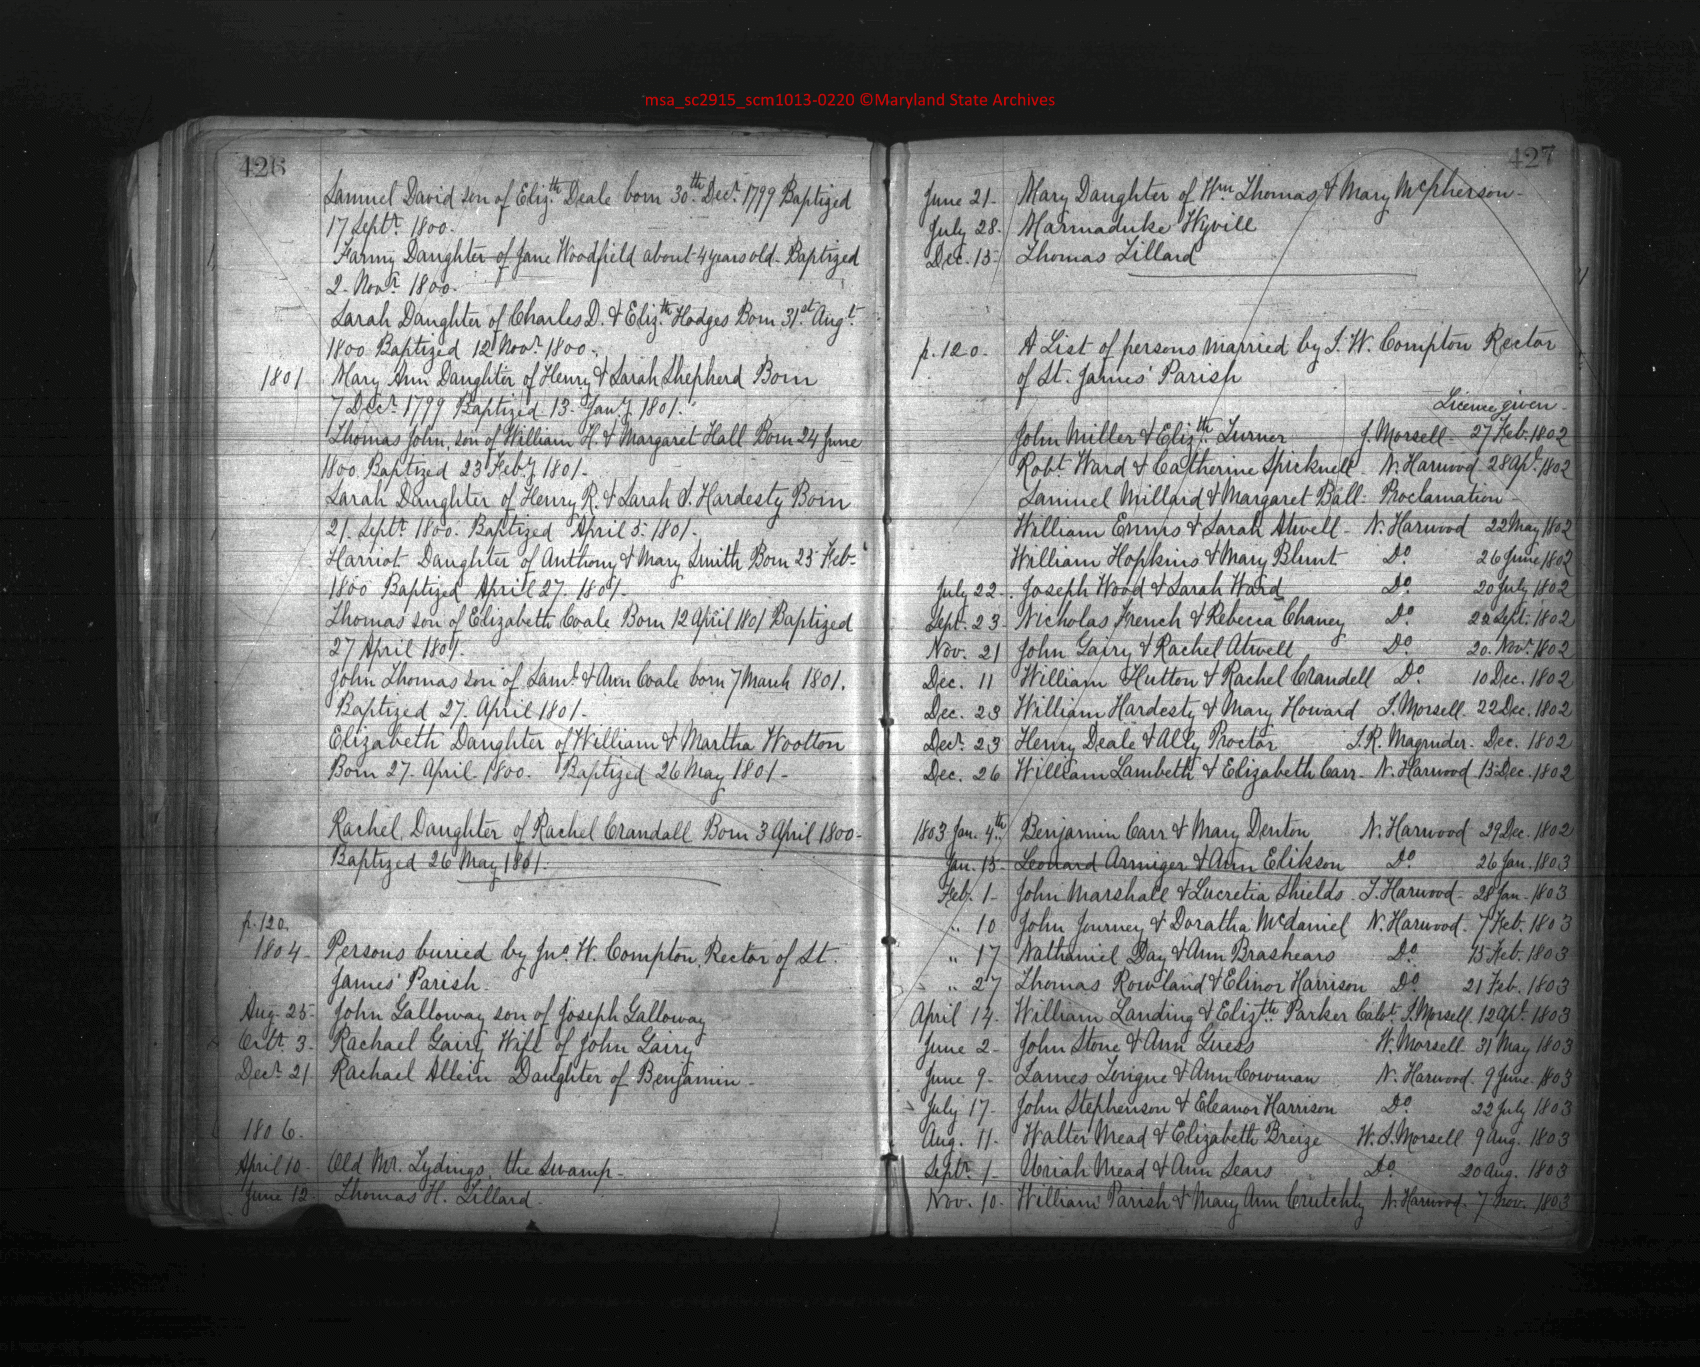 msa_sc2915_scm1013-0220 ©Maryland State Archives
426
Samuel David son of Elizth Deale born 30th Decr 1799 Baptized
17 Septr 1800.
Fanny Daughter of Jane Woodfield about 4 years old. Baptized
2 Novr 1800.
Sarah Daughter of Charles D. & Elizth Hodges Born 31st Augt
1800 Baptized 12 Novr 1800.
1801 Mary Ann Daughter of Henry & Sarah Shepherd Born
7 Decr 1799 Baptized 13 Jany 1801.
Thomas John, son of William H. & Margaret Hall Born 24 June
1800 Baptized 23 Feby 1801.
Sarah Daughter of Henry R. & Sarah S. Hardesty Born
21. Septr 1800. Baptized April 5. 1801.
Harriot Daughter of Anthony & Mary Smith Born 25 Feb
1800 Baptized April 27. 1801.
Thomas son of Elizabeth Coale Born 12 April 1801 Baptized
27 April 1801.
John Thomas son of Saml & Ann Coale born 7 March 1801.
Baptized 27. April 1801.
Elizabeth Daughter of William & Martha Wootton
Born 27. April. 1800. Baptized 26 May 1801.
Rachel, Daughter of Rachel Crandall Born 3 April 1800.
Baptized 26 May 1801.
p. 120.
1804. Persons buried by Jno. W. Compton, Rector of St.
James' Parish.
Aug. 25. John Galloway son of Joseph Galloway
Octr 3. Rachael Gairy, Wife of John Gairy
Decr 21 Rachael Allein Daughter of Benjamin.
1806.
April 10. Old Mr. Lydings, the Swamp.
June 12. Thomas H. Lillard.
427
June 21. Mary Daughter of Wm Thomas & Mary McPherson.
July 28. Marmaduke Wyvill
Dec. 15. Thomas Lillard
p. 120. A List of persons married by J. W. Compton Rector
of St. James' Parish
License given.
John Miller & Elizth Turner J. Morsell. 27 Feb. 1802
Robt Ward & Catherine Spicknell. N. Harwood. 28 Apl. 1802
Samuel Millard & Margaret Ball. Proclamation.
William Ennis & Sarah Atwell. N. Harwood 22 May 1802
William Hopkins & Mary Blunt Do. 26 June 1802
July 22. Joseph Wood & Sarah Ward Do. 20 July 1802
Sept. 23 Nicholas French & Rebecca Chaney Do. 22 Sept. 1802
Nov. 21 John Gairy & Rachel Atwell Do. 20. Novr. 1802
Dec. 11 William Hutton & Rachel Crandell Do. 10 Dec. 1802
Dec. 23 William Hardesty & Mary Howard J. Morsell. 22 Dec. 1802
Decr. 23 Henry Deale & Ally Proctor J. R. Magruder. Dec. 1802
Dec. 26 William Lambeth & Elizabeth Carr. N. Harwood 15 Dec. 1802
1803 Jan. 4th Benjamin Carr & Mary Denton N. Harwood 29 Dec. 1802
Jan. 15. Leonard Armiger & Ann Elikson Do. 26 Jan. 1803
Feb. 1. John Marshall & Lucretia Shields. T. Harwood. 28 Jan. 1803
" 10 John Journey & Doratha McDaniel N. Harwood. 7 Feb. 1803
" 17 Nathaniel Day & Ann Brashears Do. 15 Feb. 1803
" 27 Thomas Rowland & Elinor Harrison Do. 21 Feb. 1803
April 14. William Landing & Elizth Parker Calvt. J. Morsell. 12 Apl. 1803
June 2. John Stone & Ann Guess W. Morsell 31 May 1803
June 9. James Tongue & Ann Cowman N. Harwood. 9 June. 1803
July 17. John Stephenson & Eleanor Harrison Do. 22 July 1803
Aug. 11. Walter Mead & Elizabeth Breize W. S. Morsell 9 Aug. 1803
Septr. 1. Uriah Mead & Ann Sears Do. 20 Aug. 1803
Nov. 10. William Parish & Mary Ann Crutchly N. Harwood. 7 Nov. 1803